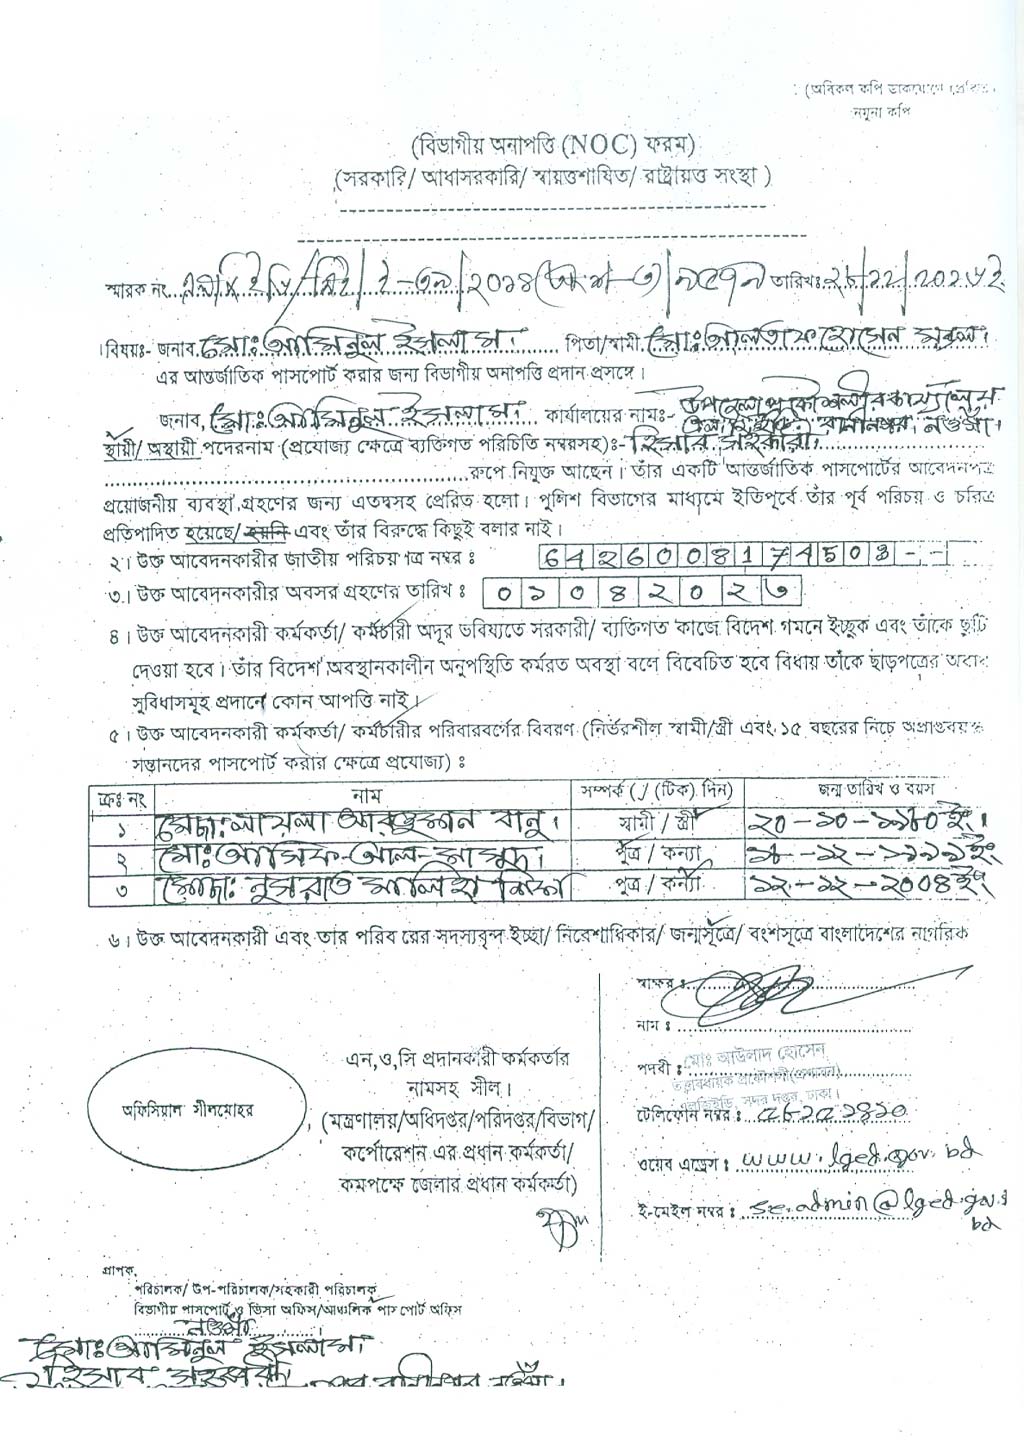 (অবিকল কপি ডাকযোগে
নমুনা কপি
(বিভাগীয় অনাপত্তি (NOC) ফরম)
(সরকারি/ আধাসরকারি/ স্বায়ত্তশাষিত/ রাষ্ট্রায়ত্ত সংস্থা )
স্মারক নং তারিখঃ
।বিষয়ঃ- জনাব মোঃ আমিনুল ইসলাম। পিতা/স্বামী মোঃ আলতাফ হোসেন
এর আন্তর্জাতিক পাসপোর্ট করার জন্য বিভাগীয় অনাপত্তি প্রদান প্রসঙ্গে।
জনাব, মোঃ আমিনুল ইসলাম। কার্যালয়ের নামঃ- উপজেলা প্রকৌশলীর কার্যালয়
স্থায়ী/ অস্থায়ী পদেরনাম (প্রযোজ্য ক্ষেত্রে ব্যক্তিগত পরিচিতি নম্বরসহ)ঃ- হিসাব সহকারী।
রুপে নিযুক্ত আছেন। তাঁর একটি আন্তর্জাতিক পাসপোর্টের আবেদনপত্র
প্রয়োজনীয় ব্যবস্থা গ্রহণের জন্য এতদ্বসহ প্রেরিত হলো। পুলিশ বিভাগের মাধ্যমে ইতিপূর্বে তাঁর পূর্ব পরিচয় ও চরিত্র
প্রতিপাদিত হয়েছে/ হয়নি এবং তাঁর বিরুদ্ধে কিছুই বলার নাই।
২। উক্ত আবেদনকারীর জাতীয় পরিচয় পত্র নম্বর ঃ 6426008174503--
৩। উক্ত আবেদনকারীর অবসর গ্রহণের তারিখ ঃ ০১০৪২০২৩
৪। উক্ত আবেদনকারী কর্মকর্তা/ কর্মচারী অদূর ভবিষ্যতে সরকারী/ ব্যক্তিগত কাজে বিদেশ গমনে ইচ্ছুক এবং তাঁকে ছুটি
দেওয়া হবে। তাঁর বিদেশ অবস্থানকালীন অনুপস্থিতি কর্মরত অবস্থা বলে বিবেচিত হবে বিধায় তাঁকে ছাড়পত্রের
সুবিধাসমূহ প্রদানে কোন আপত্তি নাই।
৫। উক্ত আবেদনকারী কর্মকর্তা/ কর্মচারীর পরিবারবর্গের বিবরণ (নির্ভরশীল স্বামী/স্ত্রী এবং ১৫ বছরের নিচে অপ্রাপ্তবয়স্ক
সন্তানদের পাসপোর্ট করার ক্ষেত্রে প্রযোজ্য) ঃ
ক্রঃ নং নাম সম্পর্ক (√ (টিক) দিন) জন্ম তারিখ ও বয়স
১ মোছাঃ লায়লা বানু। স্বামী / স্ত্রী ২০-১০-১৯৮০ইং।
২ মোঃ আসিফ-আল-মাসুদ। পুত্র / কন্যা ১৪-১২-১৯৯৯ইং
৩ মোছাঃ নুসরাত পুত্র / কন্যা ১২-১২-২০০৪ইং
৬। উক্ত আবেদনকারী এবং তার পরিবারের সদস্যবৃন্দ ইচ্ছা/ জন্মসূত্রে/ বংশসূত্রে বাংলাদেশের নাগরিক
স্বাক্ষর ঃ
নাম ঃ
এন,ও,সি প্রদানকারী কর্মকর্তার
নামসহ সীল।
পদবী ঃ মোঃ আউলাদ হোসেন
তত্ত্বাবধায়ক প্রকৌশলী(প্রশাসন)
এলজিইডি, সদর দপ্তর, ঢাকা।
অফিসিয়াল সীলমোহর
(মন্ত্রণালয়/অধিদপ্তর/পরিদপ্তর/বিভাগ/
কর্পোরেশন এর প্রধান কর্মকর্তা/
কমপক্ষে জেলার প্রধান কর্মকর্তা)
টেলিফোন নম্বর ঃ
ওয়েব এড্রেস ঃ www.lged.gov.bd
ই-মেইল নম্বর ঃ se.admin@lged.gov.
bd
প্রাপক,
পরিচালক/ উপ-পরিচালক/সহকারী পরিচালক
বিভাগীয় পাসপোর্ট ও ভিসা অফিস/আঞ্চলিক পাসপোর্ট অফিস
নওগাঁ।
মোঃ আমিনুল ইসলাম।
হিসাব সহকারী